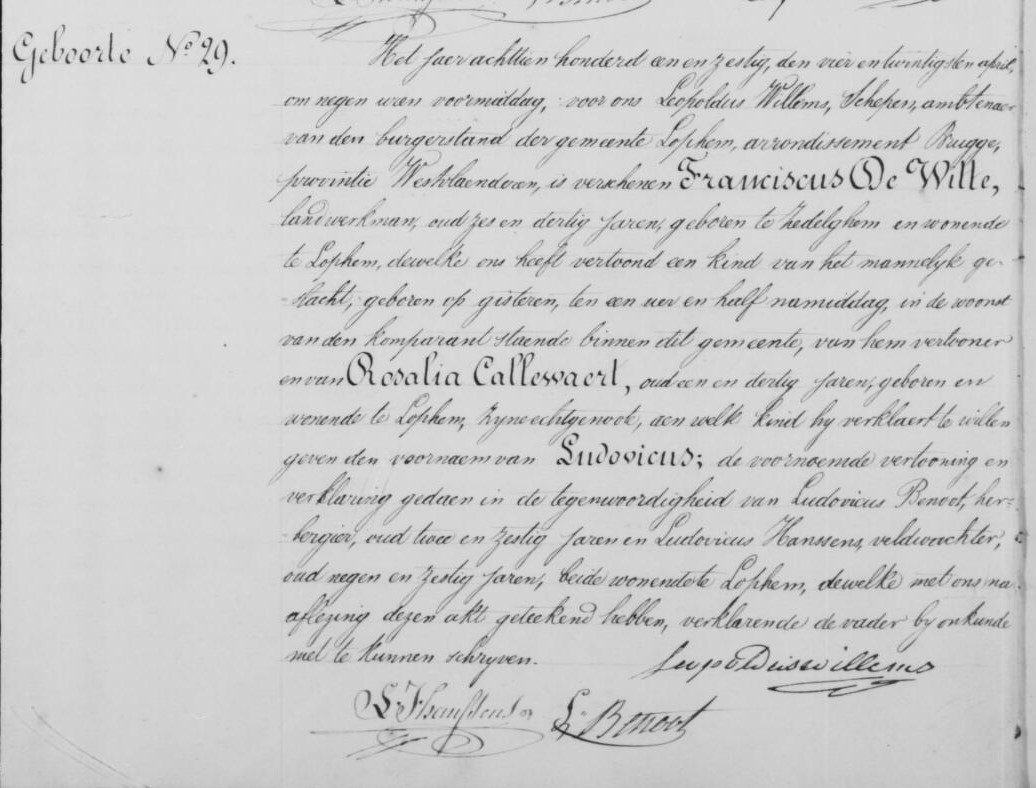 Geboorte No 29.
Het jaer achttien honderd een en zestig, den vier en twintigsten april,
om negen uren voormiddag, voor ons Leopoldus Willems, Schepen, ambtenaer
van den burgerstand der gemeente Lophem, arrondissement Brugge,
provintie Westvlaenderen, is verschenen Franciscus De Witte,
landwerkman, oud zes en dertig jaren, geboren te Zedelghem en wonende
te Lophem, dewelke ons heeft vertoond een kind van het mannelyk ge-
slacht, geboren op gisteren, ten een uer en half namiddag, in de woonst
van den komparant staende binnen dit gemeente, van hem vertooner
en van Rosalia Callewaert, oud een en dertig jaren, geboren en
wonende te Lophem, zyne echtgenoote, aen welk kind hy verklaert te willen
geven den voornaem van Ludovicus; de voornoemde vertooning en
verklaring gedaen in de tegenwoordigheid van Ludovicus Benoot, her-
bergier, oud twee en zestig jaren en Ludovicus Hanssens, veldwachter,
oud negen en zestig jaren, beide wonende te Lophem, dewelke met ons na
aflezing dezen akt geteekend hebben, verklarende de vader by onkunde
niet te kunnen schryven.
Leopoldus Willems
L. Hanssens L. Benoot